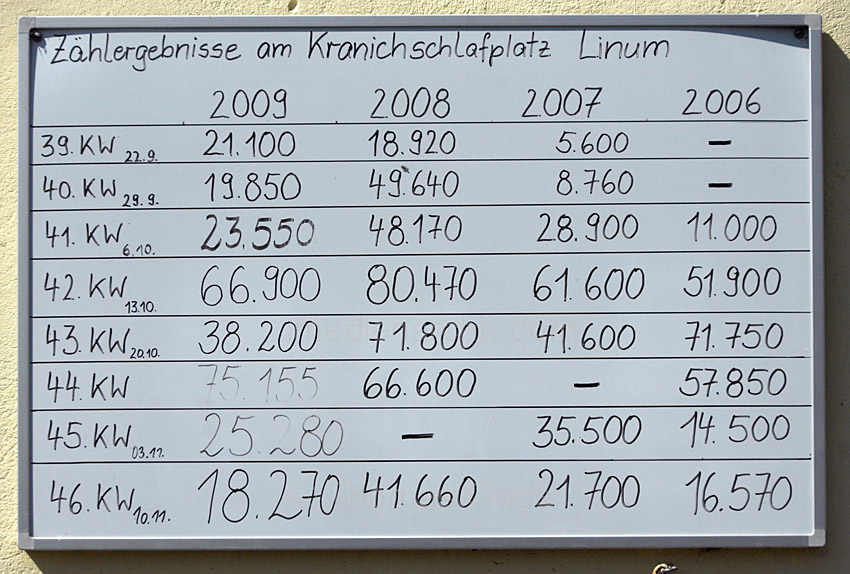 Zählergebnisse am Kranichschlafplatz Linum
2009 2008 2007 2006
39. KW 22.9. 21.100 18.920 5.600 –
40. KW 29.9. 19.850 49.640 8.760 –
41. KW 6.10. 23.550 48.170 28.900 11.000
42. KW 13.10. 66.900 80.470 61.600 51.900
43. KW 20.10. 38.200 71.800 41.600 71.750
44. KW 75.155 66.600 – 57.850
45. KW 03.11. 25.280 – 35.500 14.500
46. KW 10.11. 18.270 41.660 21.700 16.570